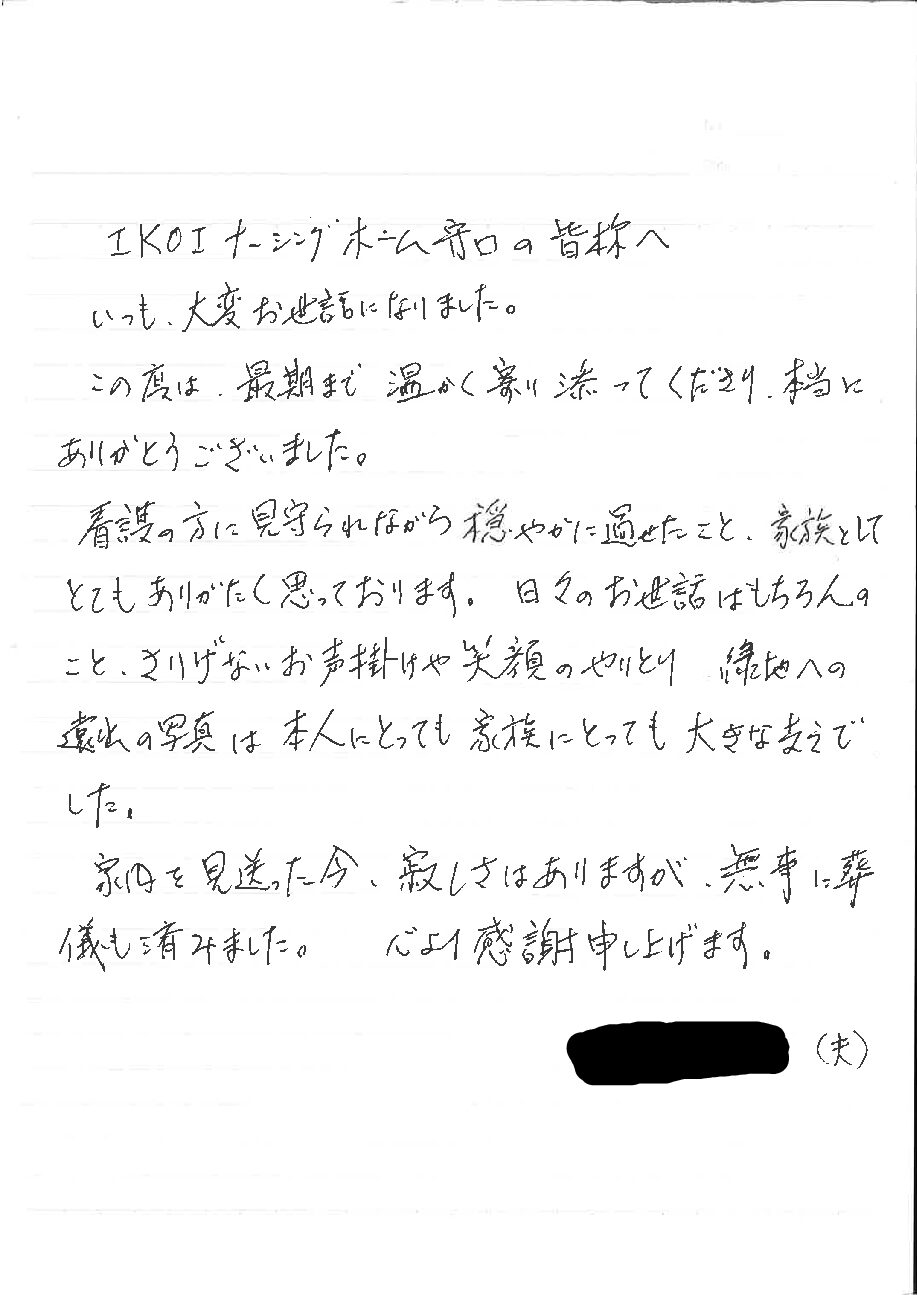 IKOIナーシングホーム守口の皆様へ
いつも、大変お世話になりました。
この度は、最期まで温かく寄り添ってくださり、本当に
ありがとうございました。
看護の方に見守られながら穏やかに過せたこと、家族として
とてもありがたく思っております。日々のお世話はもちろんの
こと、さりげないお声掛けや笑顔のやりとり 緑地への
遠出の写真は本人にとっても家族にとっても大きな支えで
した。
家内を見送った今、寂しさはありますが、無事に葬
儀も済みました。 心より感謝申し上げます。
(夫)